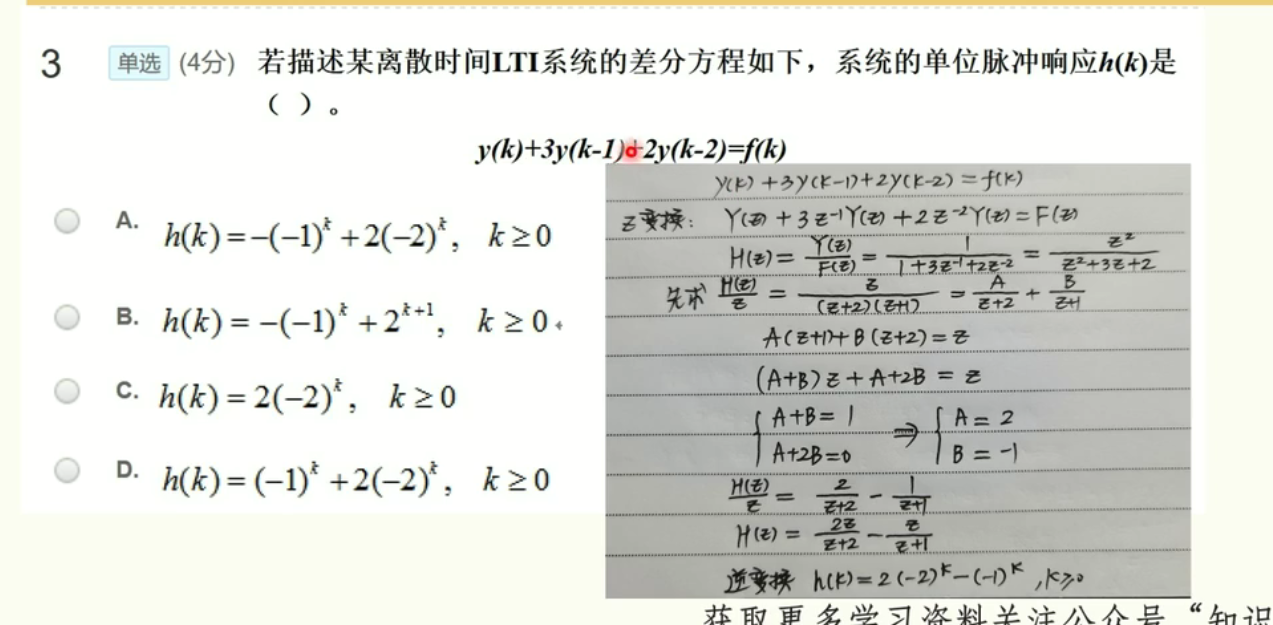 3 单选 (4分) 若描述某离散时间LTI系统的差分方程如下，系统的单位脉冲响应h(k)是
（ ）。
y(k)+3y(k-1)+2y(k-2)=f(k)
A. h(k)=-(-1)^k+2(-2)^k, k≥0
B. h(k)=-(-1)^k+2^{k+1}, k≥0
C. h(k)=2(-2)^k, k≥0
D. h(k)=(-1)^k+2(-2)^k, k≥0
y(k)+3y(k-1)+2y(k-2)=f(k)
Z变换: Y(z)+3z^{-1}Y(z)+2z^{-2}Y(z)=F(z)
H(z)=Y(z)/F(z)=1/(1+3z^{-1}+2z^{-2})=z^2/(z^2+3z+2)
先求 H(z)/z=z/((z+2)(z+1))=A/(z+2)+B/(z+1)
A(z+1)+B(z+2)=z
(A+B)z+A+2B=z
{A+B=1 ⇒ {A=2
A+2B=0 B=-1
H(z)/z=2/(z+2)-1/(z+1)
H(z)=2z/(z+2)-z/(z+1)
逆变换 h(k)=2(-2)^k-(-1)^k, k≥0
获取更多学习资料关注公众号“知识